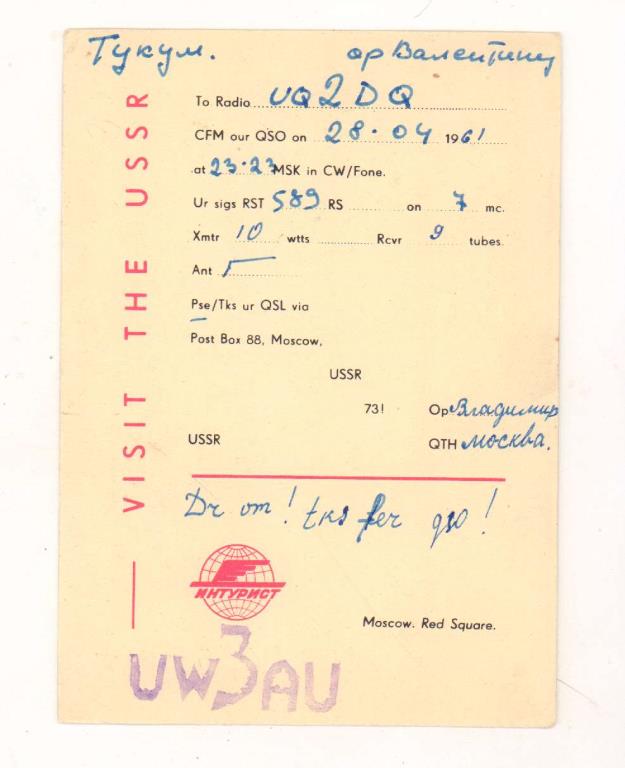 Тукум. ор Валентину
To Radio UQ2DQ
CFM our QSO on 28·04 1961
at 23·23 MSK in CW/Fone.
Ur sigs RST 589 RS on 7 mc.
Xmtr 10 wtts Rcvr 9 tubes
Ant Г
Pse/Tks ur QSL via
Post Box 88, Moscow,
USSR
73! Op Владимир
USSR QTH Москва.
Dr om! tks fer qso!
VISIT THE USSR
ИНТУРИСТ
Moscow. Red Square.
UW3AU